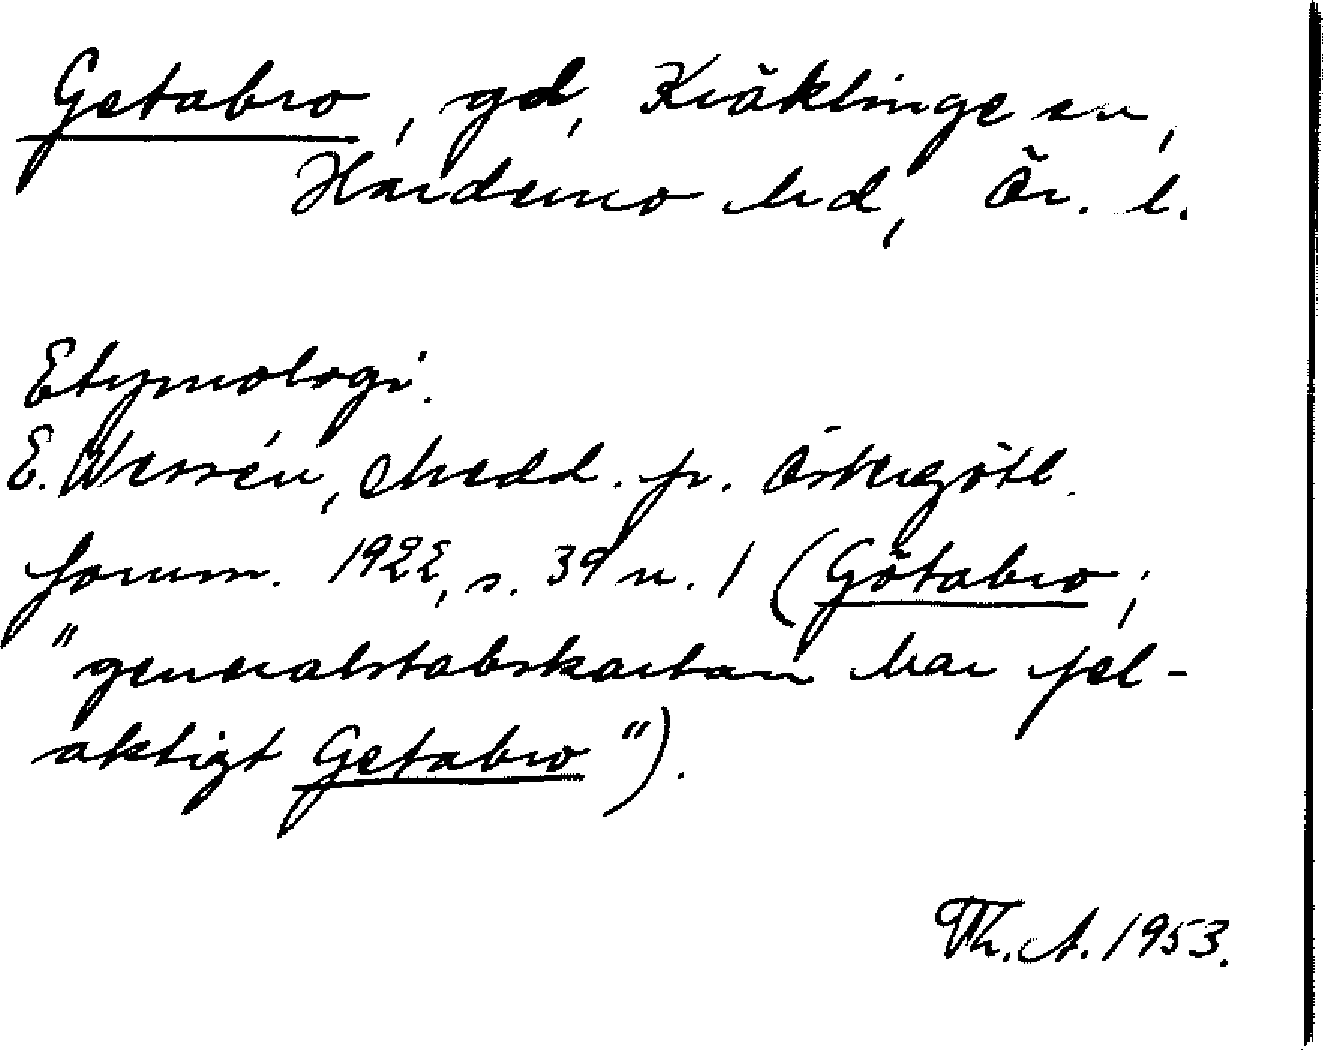 Getabro, gd, Kräklinge sn,
Hardemo hd, Ör. l.
Etymologi.
E. Wessén, Medd. fr. Östergötl.
fornm. 1922, s. 39 n. 1 (Götabro;
"generalstabskartan har fel-
aktigt Getabro").
Th. A. 1953.